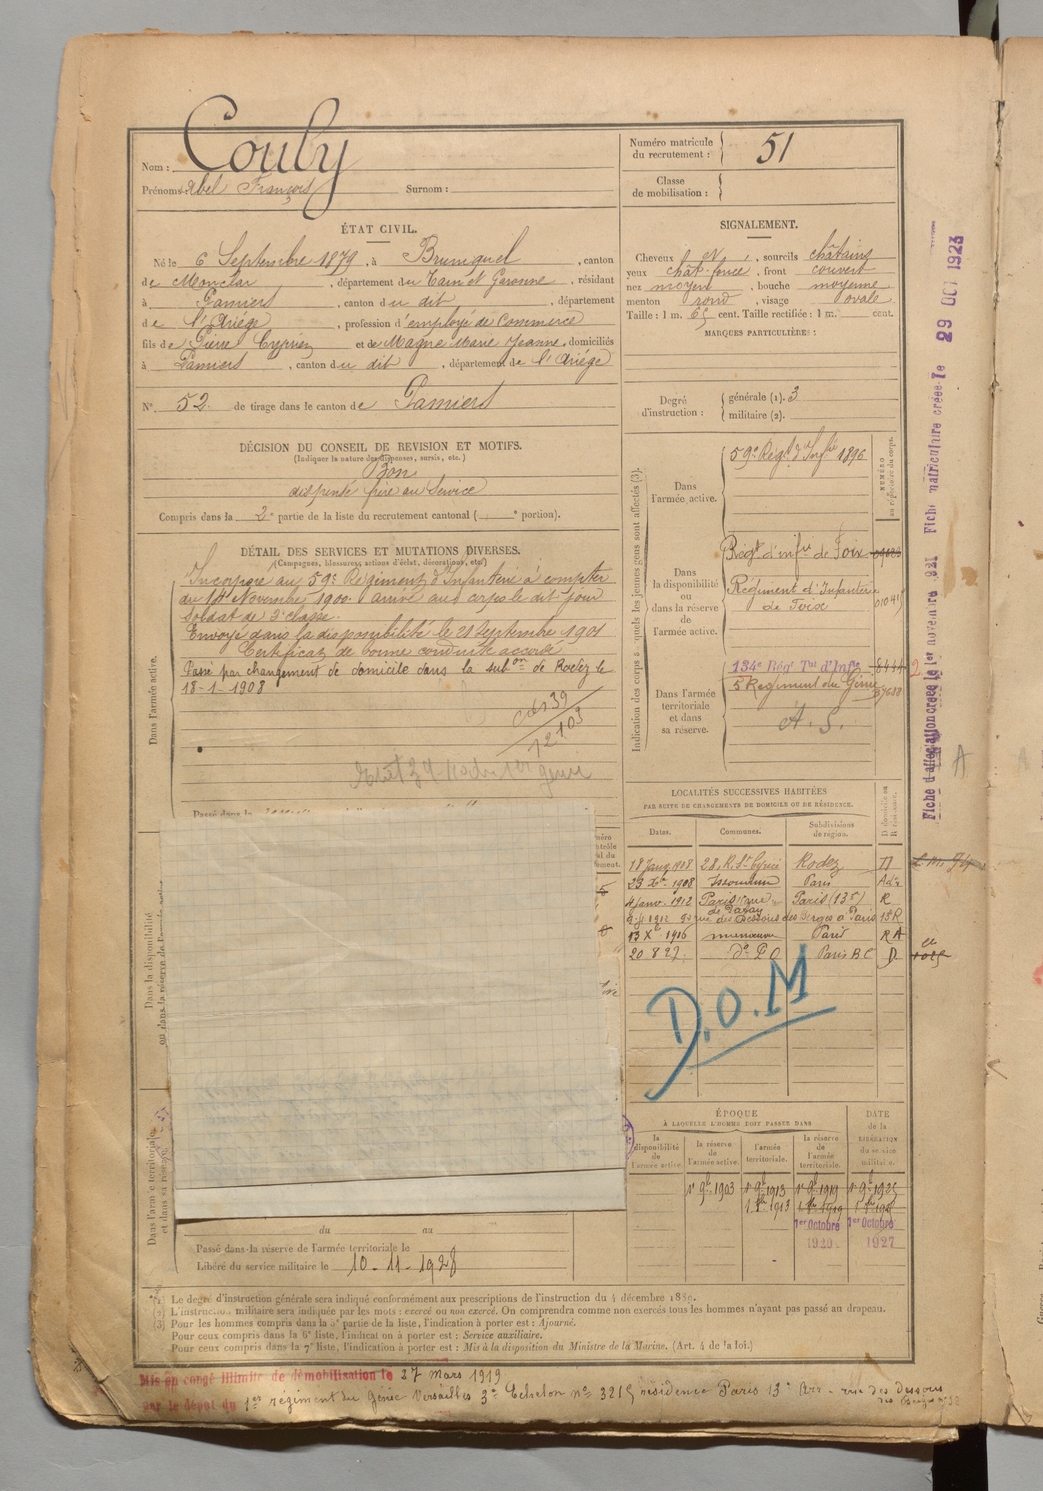 Nom : Couly
Prénoms : Abel François Surnom :
Numéro matricule du recrutement : 51
Classe de mobilisation :
ÉTAT CIVIL.
Né le 6 Septembre 1879, à Bruniquel, canton
de Monclar, département du Tarn et Garonne, résidant
à Pamiers, canton du dit, département
de l'Ariège, profession d'employé de Commerce
fils de Pierre Cyprien et de Magne Marie Jeanne, domiciliés
à Pamiers, canton du dit, département de l'Ariège
N° 52 de tirage dans le canton de Pamiers
SIGNALEMENT.
Cheveux et, sourcils châtains
yeux chât-foncé, front couvert
nez moyen, bouche moyenne
menton rond, visage ovale
Taille : 1 m. 65 cent. Taille rectifiée : 1 m. cent.
MARQUES PARTICULIÈRES :
Degré d'instruction : générale (1). 3
militaire (2).
DÉCISION DU CONSEIL DE REVISION ET MOTIFS.
(Indiquer la nature des dispenses, sursis, etc.)
Bon
dispensé frère au Service
Compris dans la 2e partie de la liste du recrutement cantonal ( e portion).
DÉTAIL DES SERVICES ET MUTATIONS DIVERSES.
(Campagnes, blessures, actions d'éclat, décorations, etc.)
Dans l'armée active.
Incorporé au 59e Régiment d'Infanterie à compter
du 14 Novembre 1900. Arrivé au corps le dit jour
Soldat de 2e classe.
Envoyé dans la disponibilité le 21 Septembre 1901
Certificat de bonne conduite accordé
Passé par changement de domicile dans la subon de Rodez le
18-1-1908
12103
Passé dans la
Indication des corps auxquels les jeunes gens sont affectés (3).
NUMÉRO
Dans l'armée active.
59e Régt d'Inftie 1896
Dans la disponibilité ou dans la réserve de l'armée active.
Régt d'infie de Foix
Régiment d'Infanterie
de Foix
Dans l'armée territoriale et dans sa réserve.
134e Rég Tal d'Infie
5e Régiment du Génie
A. S.
LOCALITÉS SUCCESSIVES HABITÉES
PAR SUITE DE CHANGEMENTS DE DOMICILE OU DE RÉSIDENCE.
Dates. Communes. Subdivisions de région.
18 Janv. 1908 28, R. St Cyrice Rodez D
23 Xbre 1908 Paris
4 Janv. 1912 Paris rue de Patay Paris (13e) R
1912 rue des Dessous des Berges à Paris 13e R
13 Xbre 1916 Paris
20 8 27 do P O Paris B.C. D
D.O.M
Dans la disponibilité
ou dans la réserve de l'armée active
Dans l'armée territoriale
et dans sa réserve.
ÉPOQUE
À LAQUELLE L'HOMME DOIT PASSER DANS
DATE de la LIBÉRATION du service militaire.
la disponibilité de l'armée active.
la réserve de l'armée active.
l'armée territoriale.
la réserve de l'armée territoriale.
1er 9bre 1903 1er 9bre 1913 1er 9bre 1919 1er 9bre 1925
1er Octobre 1920 1er Octobre 1927
du au
Passé dans la réserve de l'armée territoriale le
Libéré du service militaire le 10-11-1928
(1) Le degré d'instruction générale sera indiqué conformément aux prescriptions de l'instruction du 4 décembre 1889.
(2) L'instruction militaire sera indiquée par les mots : exercé ou non exercé. On comprendra comme non exercés tous les hommes n'ayant pas passé au drapeau.
(3) Pour les hommes compris dans la 5e partie de la liste, l'indication à porter est : Ajourné.
Pour ceux compris dans la 6e liste, l'indication à porter est : Service auxiliaire.
Pour ceux compris dans la 7e liste, l'indication à porter est : Mis à la disposition du Ministre de la Marine. (Art. 4 de la loi.)
Mis en congé illimité de démobilisation le 27 Mars 1919
par le dépôt du 1er régiment du Génie Versailles 3e Echelon no 3215 résidence Paris 13e Arr - rue des dessous
des Berges
Fiche d'affectation créée le 1er novembre 1921 Fiche matriculaire créée le 29 OCT 1923
A